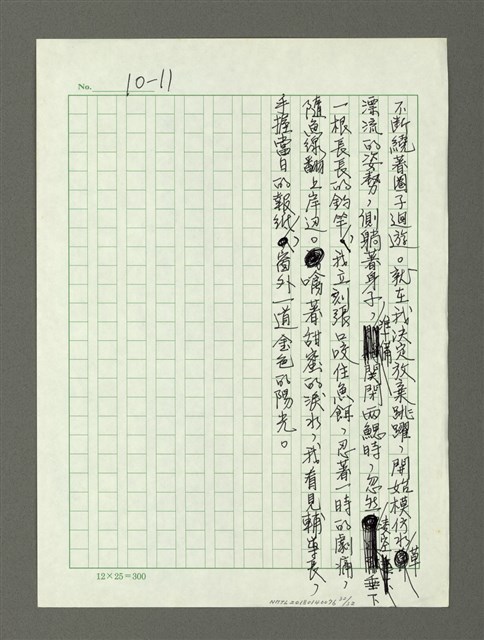 No. 10-11
不断繞著圈子迴游。就在我決定放棄跳躍,開始模仿水草
漂流的姿勢,側躺著身子,准備関閉兩鰓時,忽然凌空垂下
一根長長的釣竿,我立刻張口咬住魚餌,忍著一時的劇痛,
隨魚線翻上岸辺。噙著甜蜜的淚水,我看見輔導長,
手握當日的報紙,窗外一道金色的陽光。
12×25=300